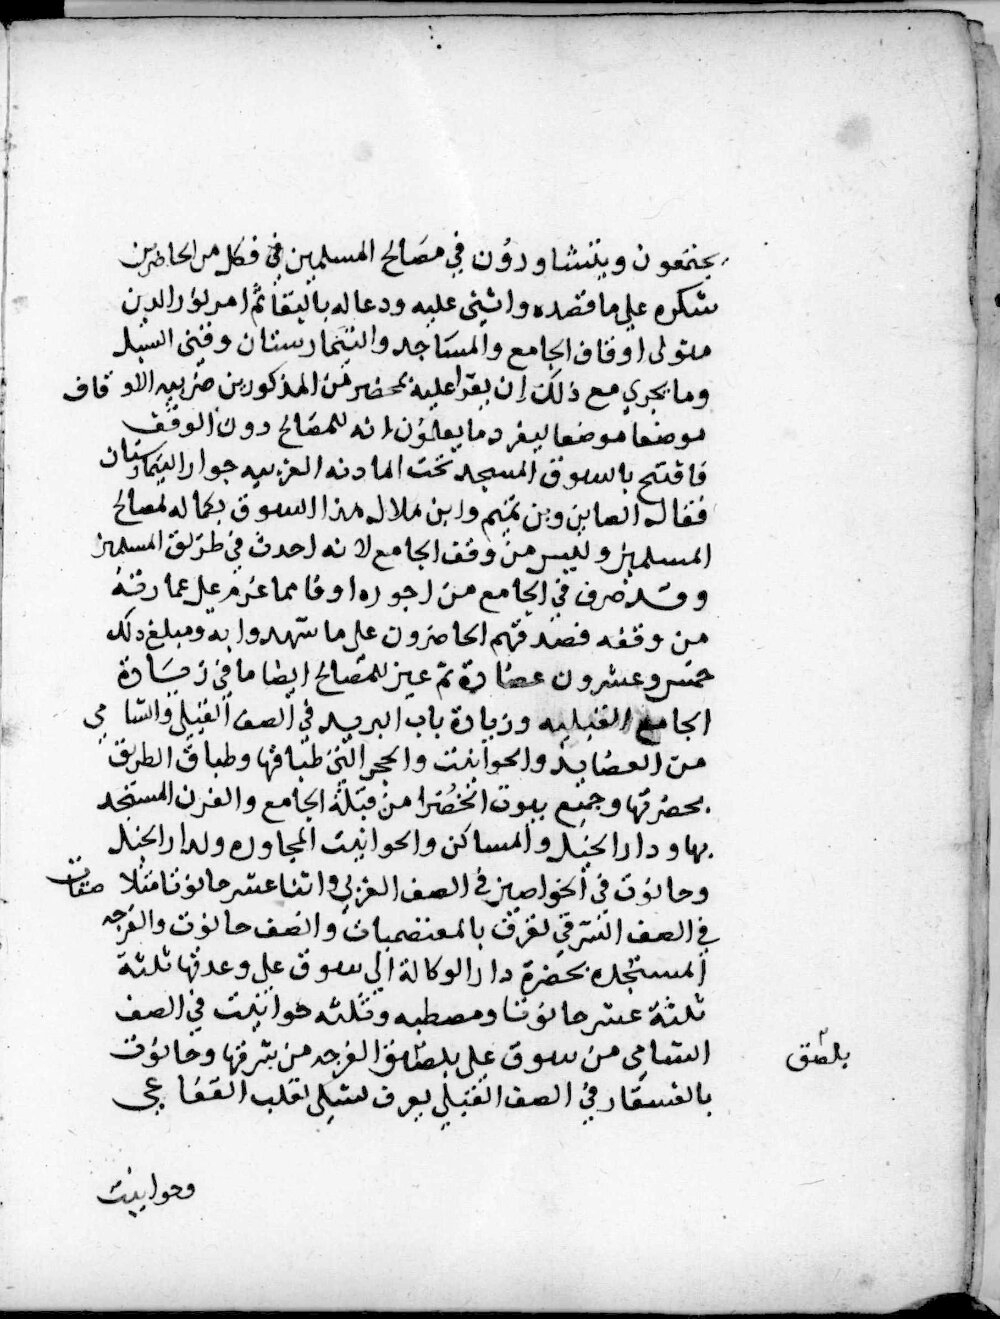 يجتمعون ويتشاورون في مصالح المسلمين فكل من الحاضرين
شكره على ما قصده واثنى عليه ودعا له بالبقا ثم امر نور الدين
متولى اوقاف الجامع والمساجد والبيمارستان وقنى السبل
وما يجري مع ذلك ان يقرا عليه بمحضر من المذكورين ضريبه الاوقاف
موضعا موضعا ليفرد ما يعلمون انه للمصالح دون الوقف
فافتتح بالسوق المسجد تحت المادنه الغربيه جوار البيمارستان
فقال الصاين وبن تميم وابن هلال هذا السوق بكماله لمصالح
المسلمين وليس من وقف الجامع لانه احدث في طريق المسلمين
وقد صرف في الجامع من اجوره اوفا مما غرم على عمارته
من وقفه فصدقهم الحاضرون على ما شهدوا به ومبلغ ذلك
خمس وعشرون عضادة ثم عين للمصالح ايضا ما في زيادة
الجامع القبليه وزيادة باب البريد في الصف القبلي والشامي
من العضايد والحوانيت والحجر التي طباقها وطباق الطريق
بحضرتها وجميع بيوت الخضرا من قبلة الجامع والفرن المستجد
بها ودار الخيل والمساكن والحوانيت المجاوره لدار الخيل
وحانوت في الخواصين في الصف الغربي واثنا عشر حانوتا متلاصقات
في الصف الشرقي تعرف بالمعتصميات ونصف حانوت والفرجه
المستجده بحضرة دار الوكالة الى سوق علي وعدتها ثلثة
ثلثة عشر حانوتا ومصطبه وثلثه حوانيت في الصف
الشامي من سوق علي بلصق الفرجه من شرقها وحانوت
بلصق
بالفسقار في الصف القبلي يعرف بسكنى تغلب الفقاعي
وحوانيت